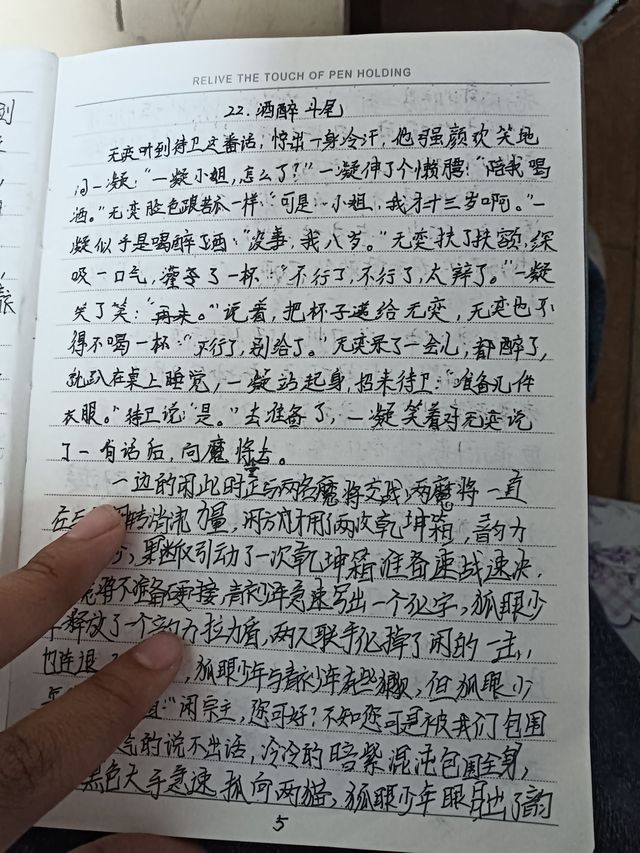 RELIVE THE TOUCH OF PEN HOLDING
22.酒醉斗尾
无奕听到待卫这番话，惊出一身冷汗，他强颜欢笑地
问一凝：“一凝小姐，怎么了？”一凝伸了个懒腰：“陪我喝
酒。”无奕脸色跟苦瓜一样：“可是，小姐，我才十三岁啊。”一
凝似乎是喝醉了酒：“没事，我八岁。”无奕扶了扶额，深
吸一口气，灌了一杯：“不行了，不行了，太辣了。”一凝
笑了笑：“再来。”说着，把杯子递给无奕，无奕也不
得不喝一杯：“不行了，别给了。”无奕呆了一会儿，都醉了，
就趴在桌上睡觉，一凝站起身，招来待卫：“准备几件
衣服。”待卫说：“是。”去准备了，一凝笑着对无奕说
了一句话后，向魔将去。
一边的闲此时正与两名魔将交战，两魔将一直
在 消流力量，闲方才用了两次乾坤箱，韵力
果断又引动了一次乾坤箱准备速战速决，
将不准备硬接，青衫少年急速写出一个化字，狐眼少
释放了一个韵力拉力盾，两人联手化掉了闲的一击，
连退 狐眼少年与青衫少年有些狼狈，但狐眼少
“闲宗主，您可好？不知您可是被我们包围
气的说不出话，冷冷的暗紫混沌包围全身，
黑色大手急速抓向两猫，狐眼少年眼冒出了韵
5
则
旅